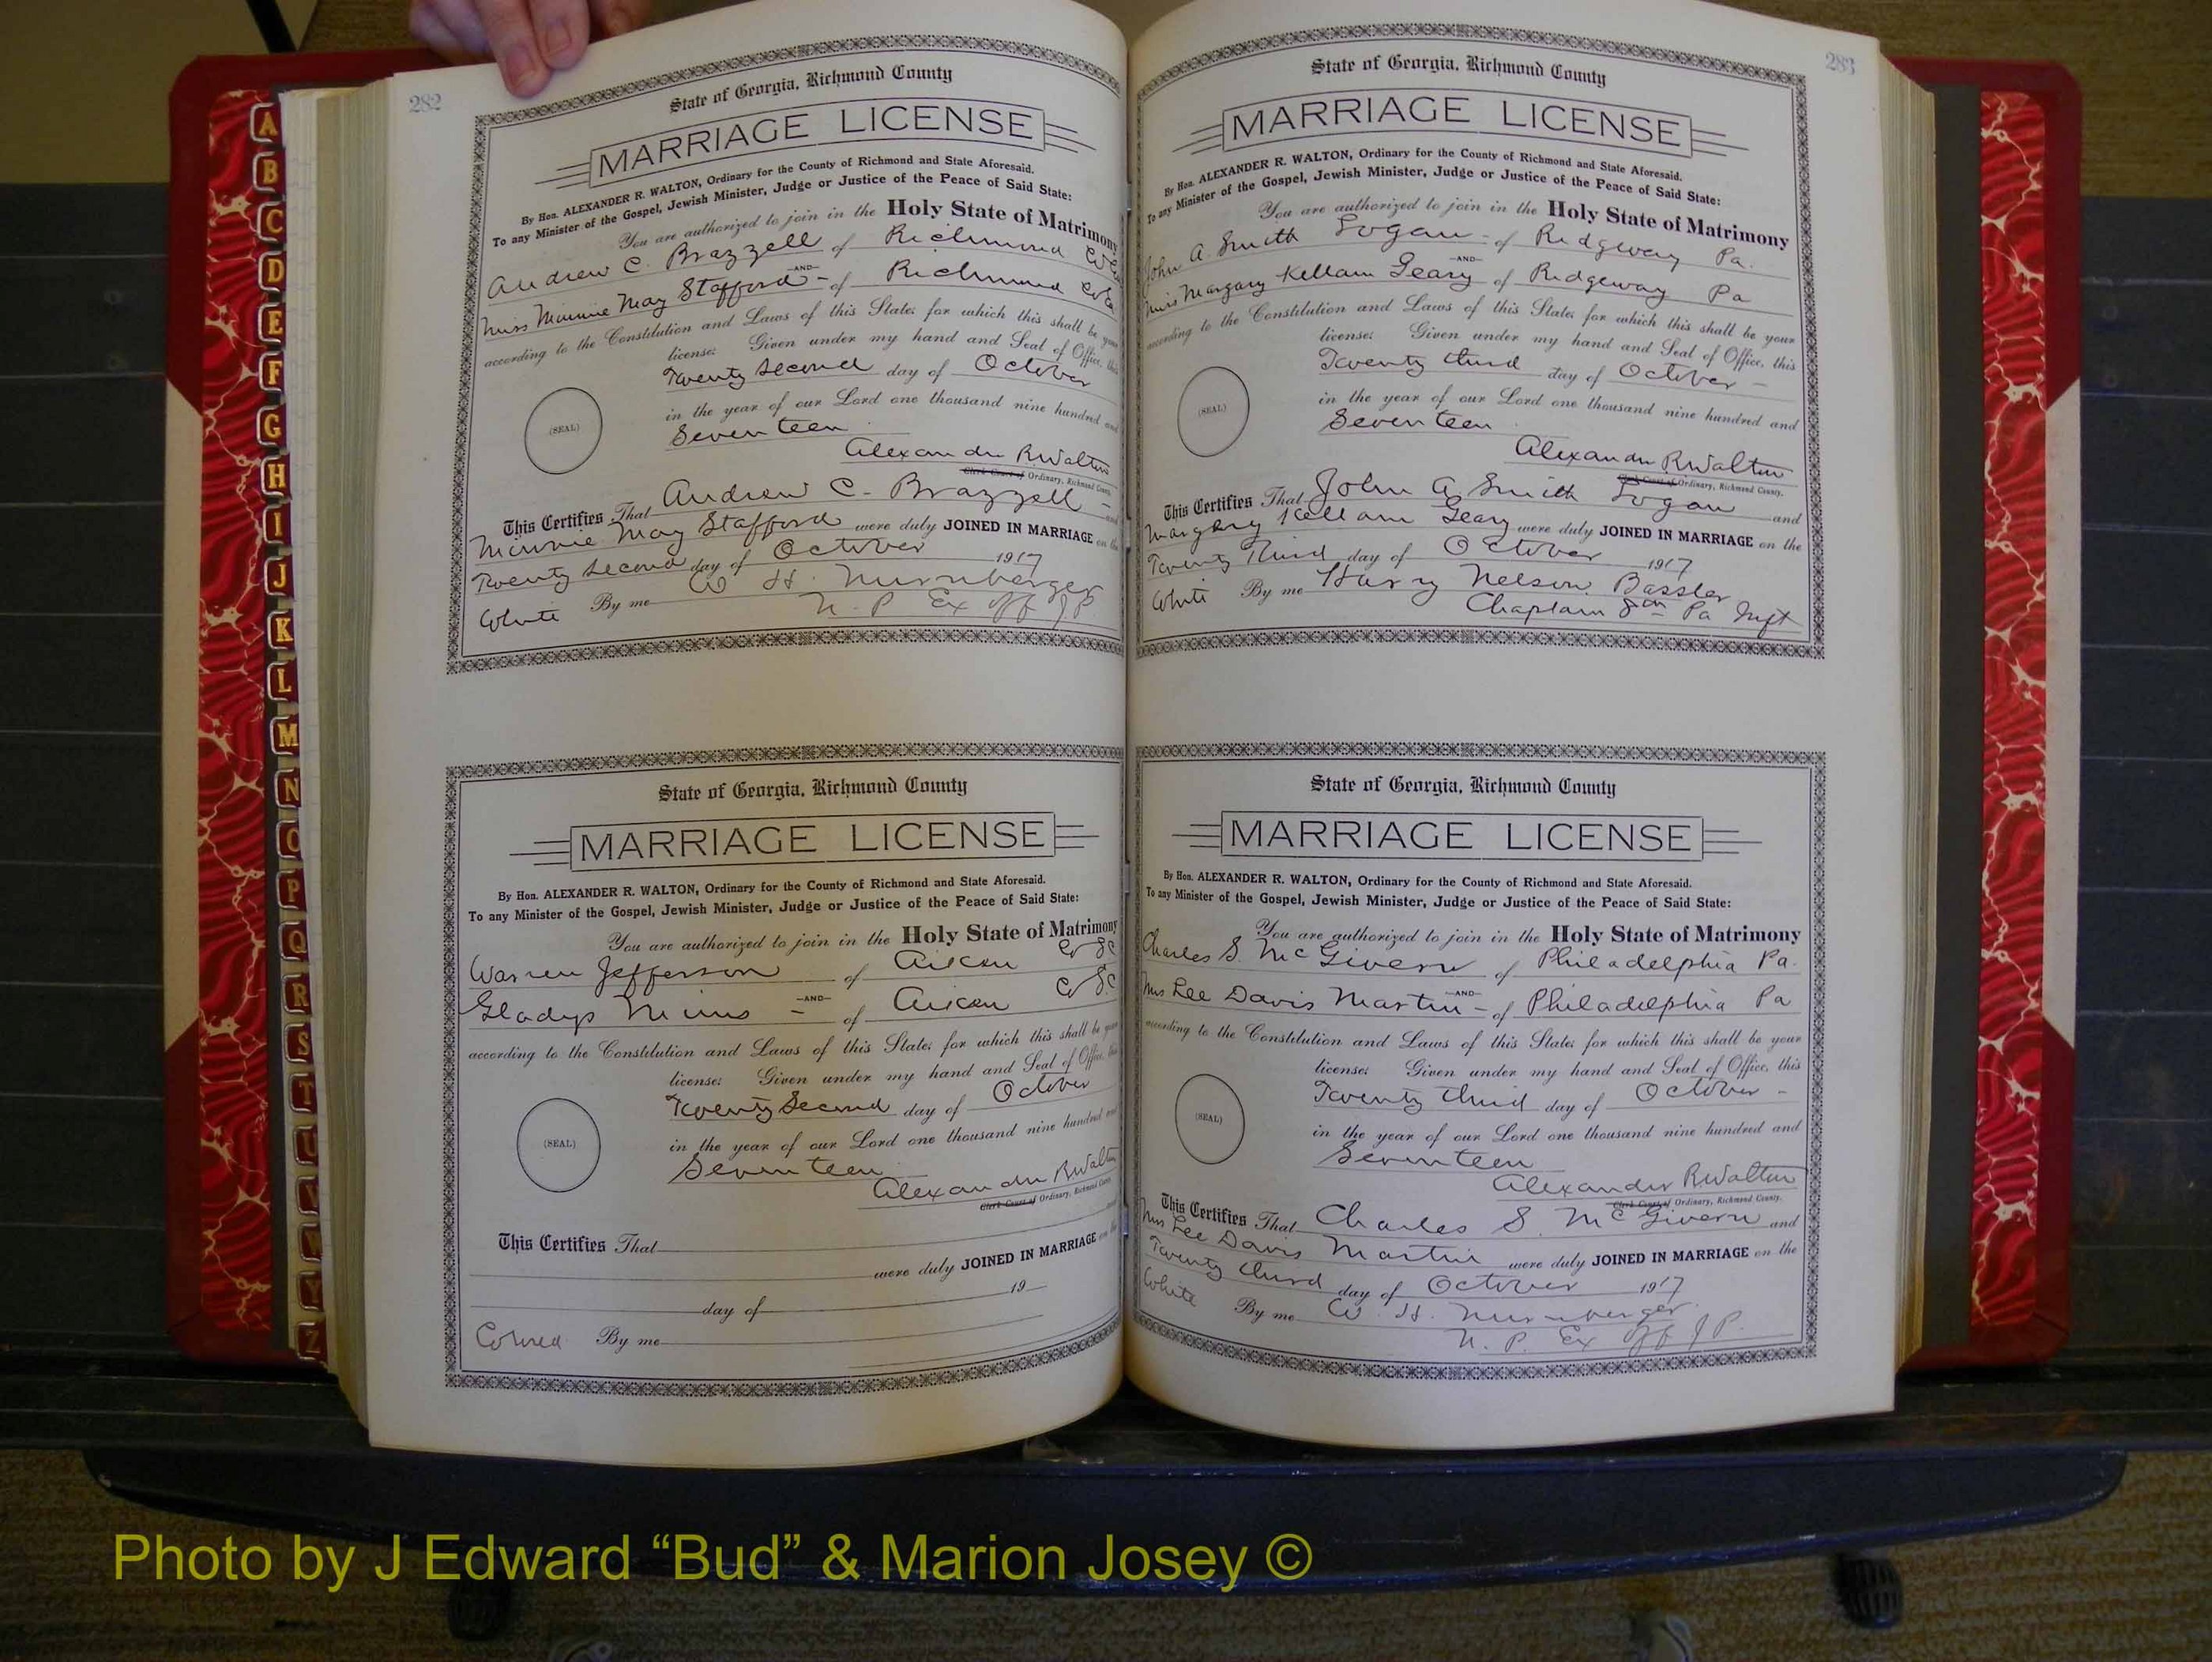 282
State of Georgia, Richmond County
MARRIAGE LICENSE
By Hon. ALEXANDER R. WALTON, Ordinary for the County of Richmond and State Aforesaid.
To any Minister of the Gospel, Jewish Minister, Judge or Justice of the Peace of Said State:
You are authorized to join in the Holy State of Matrimony
Andrew C. Brazzell of Richmond Co
—AND—
Miss Minnie May Stafford - of Richmond Co
according to the Constitution and Laws of this State; for which this shall be your
license: Given under my hand and Seal of Office, this
Twenty Second day of October
in the year of our Lord one thousand nine hundred and
Seventeen
(SEAL)
Alexander R Walton
Clerk Court of Ordinary, Richmond County.
This Certifies That Andrew C. Brazzell - and
Minnie May Stafford were duly JOINED IN MARRIAGE on the
Twenty Second day of October 1917
White By me W. H. Nurnberger
N. P. Ex Off J.P.
State of Georgia, Richmond County
MARRIAGE LICENSE
By Hon. ALEXANDER R. WALTON, Ordinary for the County of Richmond and State Aforesaid.
To any Minister of the Gospel, Jewish Minister, Judge or Justice of the Peace of Said State:
You are authorized to join in the Holy State of Matrimony
Warren Jefferson of Aiken Co SC
—AND—
Gladys Mims - of Aiken Co SC
according to the Constitution and Laws of this State; for which this shall be your
license: Given under my hand and Seal of Office, this
Twenty Second day of October
in the year of our Lord one thousand nine hundred and
Seventeen
(SEAL)
Alexander R Walton
Clerk Court of Ordinary, Richmond County.
This Certifies That
were duly JOINED IN MARRIAGE on the
day of 19
Colored By me
283
State of Georgia, Richmond County
MARRIAGE LICENSE
By Hon. ALEXANDER R. WALTON, Ordinary for the County of Richmond and State Aforesaid.
To any Minister of the Gospel, Jewish Minister, Judge or Justice of the Peace of Said State:
You are authorized to join in the Holy State of Matrimony
John A. Smith Logan - of Ridgeway Pa.
—AND—
Miss Margary Kellam Geary of Ridgeway Pa
according to the Constitution and Laws of this State; for which this shall be your
license: Given under my hand and Seal of Office, this
Twenty third day of October -
in the year of our Lord one thousand nine hundred and
Seventeen
(SEAL)
Alexander R Walton
Clerk Court of Ordinary, Richmond County.
This Certifies That John A Smith Logan and
Margary Kellam Geary were duly JOINED IN MARRIAGE on the
Twenty Third day of October 1917
White By me Harry Nelson Bassler
Chaplain 8th Pa Inft
State of Georgia, Richmond County
MARRIAGE LICENSE
By Hon. ALEXANDER R. WALTON, Ordinary for the County of Richmond and State Aforesaid.
To any Minister of the Gospel, Jewish Minister, Judge or Justice of the Peace of Said State:
You are authorized to join in the Holy State of Matrimony
Charles S. McGivern of Philadelphia Pa.
—AND—
Mrs Lee Davis Martin - of Philadelphia Pa
according to the Constitution and Laws of this State; for which this shall be your
license: Given under my hand and Seal of Office, this
Twenty third day of October -
in the year of our Lord one thousand nine hundred and
Seventeen
(SEAL)
Alexander R Walton
Clerk Court of Ordinary, Richmond County.
This Certifies That Charles S. McGivern and
Mrs Lee Davis Martin were duly JOINED IN MARRIAGE on the
Twenty third day of October 1917
White By me W. H. Nurnberger
N. P. Ex Off J P.
A
B
C
D
E
F
G
H
I
J
K
L
M
N
O
P
Q
R
S
T
U
V
W
Y
Z
Photo by J Edward “Bud” & Marion Josey ©